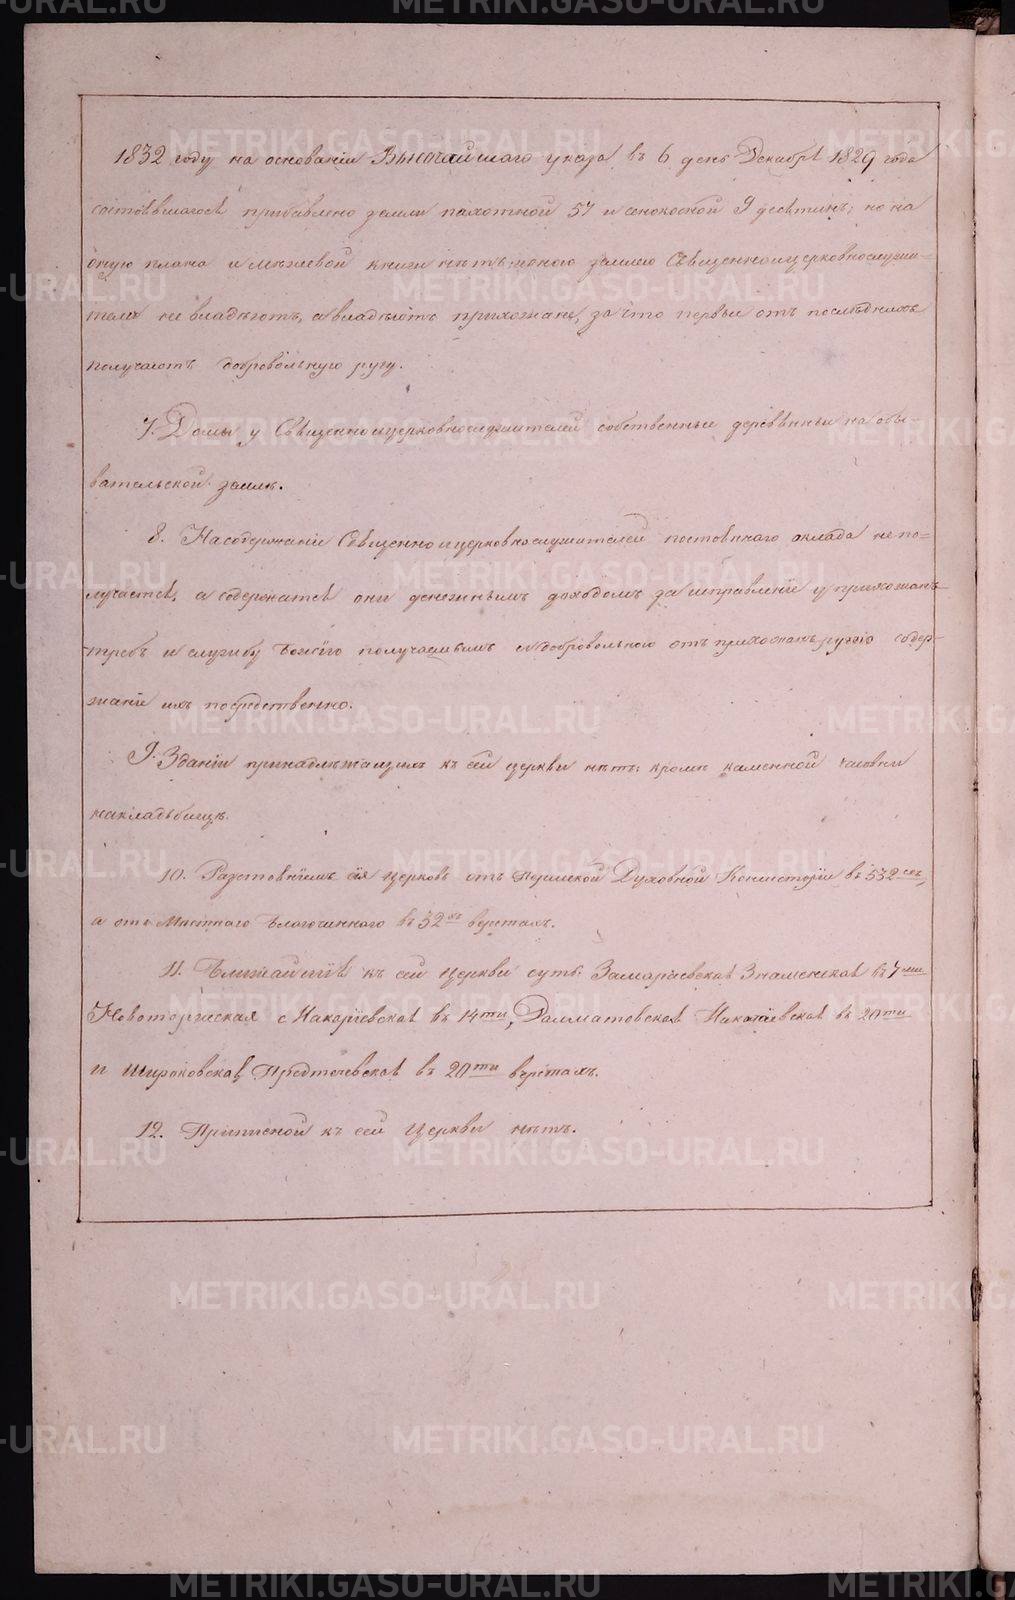 1832 году на основаніи Высочайшаго указа въ 6 день Декабря 1829 года
состоявшагося прибавлено земли пахотной 57 и сенокосной 9 десятинъ; но на
оную плана и межевой книги нѣтъ; оною землею Священноицерковнослужи-
тели не владѣютъ, а владѣютъ прихожане, за что первые отъ послѣднихъ
получаютъ добровольную ругу.
7. Домы у Священноицерковнослужителей собственные деревянные на обы-
вательской землѣ.
8. На содержаніе Священноицерковнослужителей постояннаго оклада не по-
лучается, а содержатся они денежнымъ доходомъ за исправленіе у прихожанъ
требъ и службу Божію получаемымъ и добровольною отъ прихожанъ ругою содер-
жаніе ихъ посредственно.
9. Зданій принадлежащихъ къ сей церкви нѣтъ; кромѣ каменной часовни
на кладбищѣ.
10. Разстояніемъ сія церковь отъ Пермской Духовной Консисторіи въ 532хъ,
а отъ Мѣстнаго Благочиннаго въ 32хъ верстахъ.
11. Ближайшіе къ сей церкви суть: Замараевская Знаменская въ 7ми
Новоторжская с Макаріевская въ 14ти, Далматовская Николаевская въ 20ти
и Широковская Предтечевская въ 20ти верстахъ.
12. Приписной къ сей Церкви нѣтъ.
METRIKI.GASO-URAL.RU